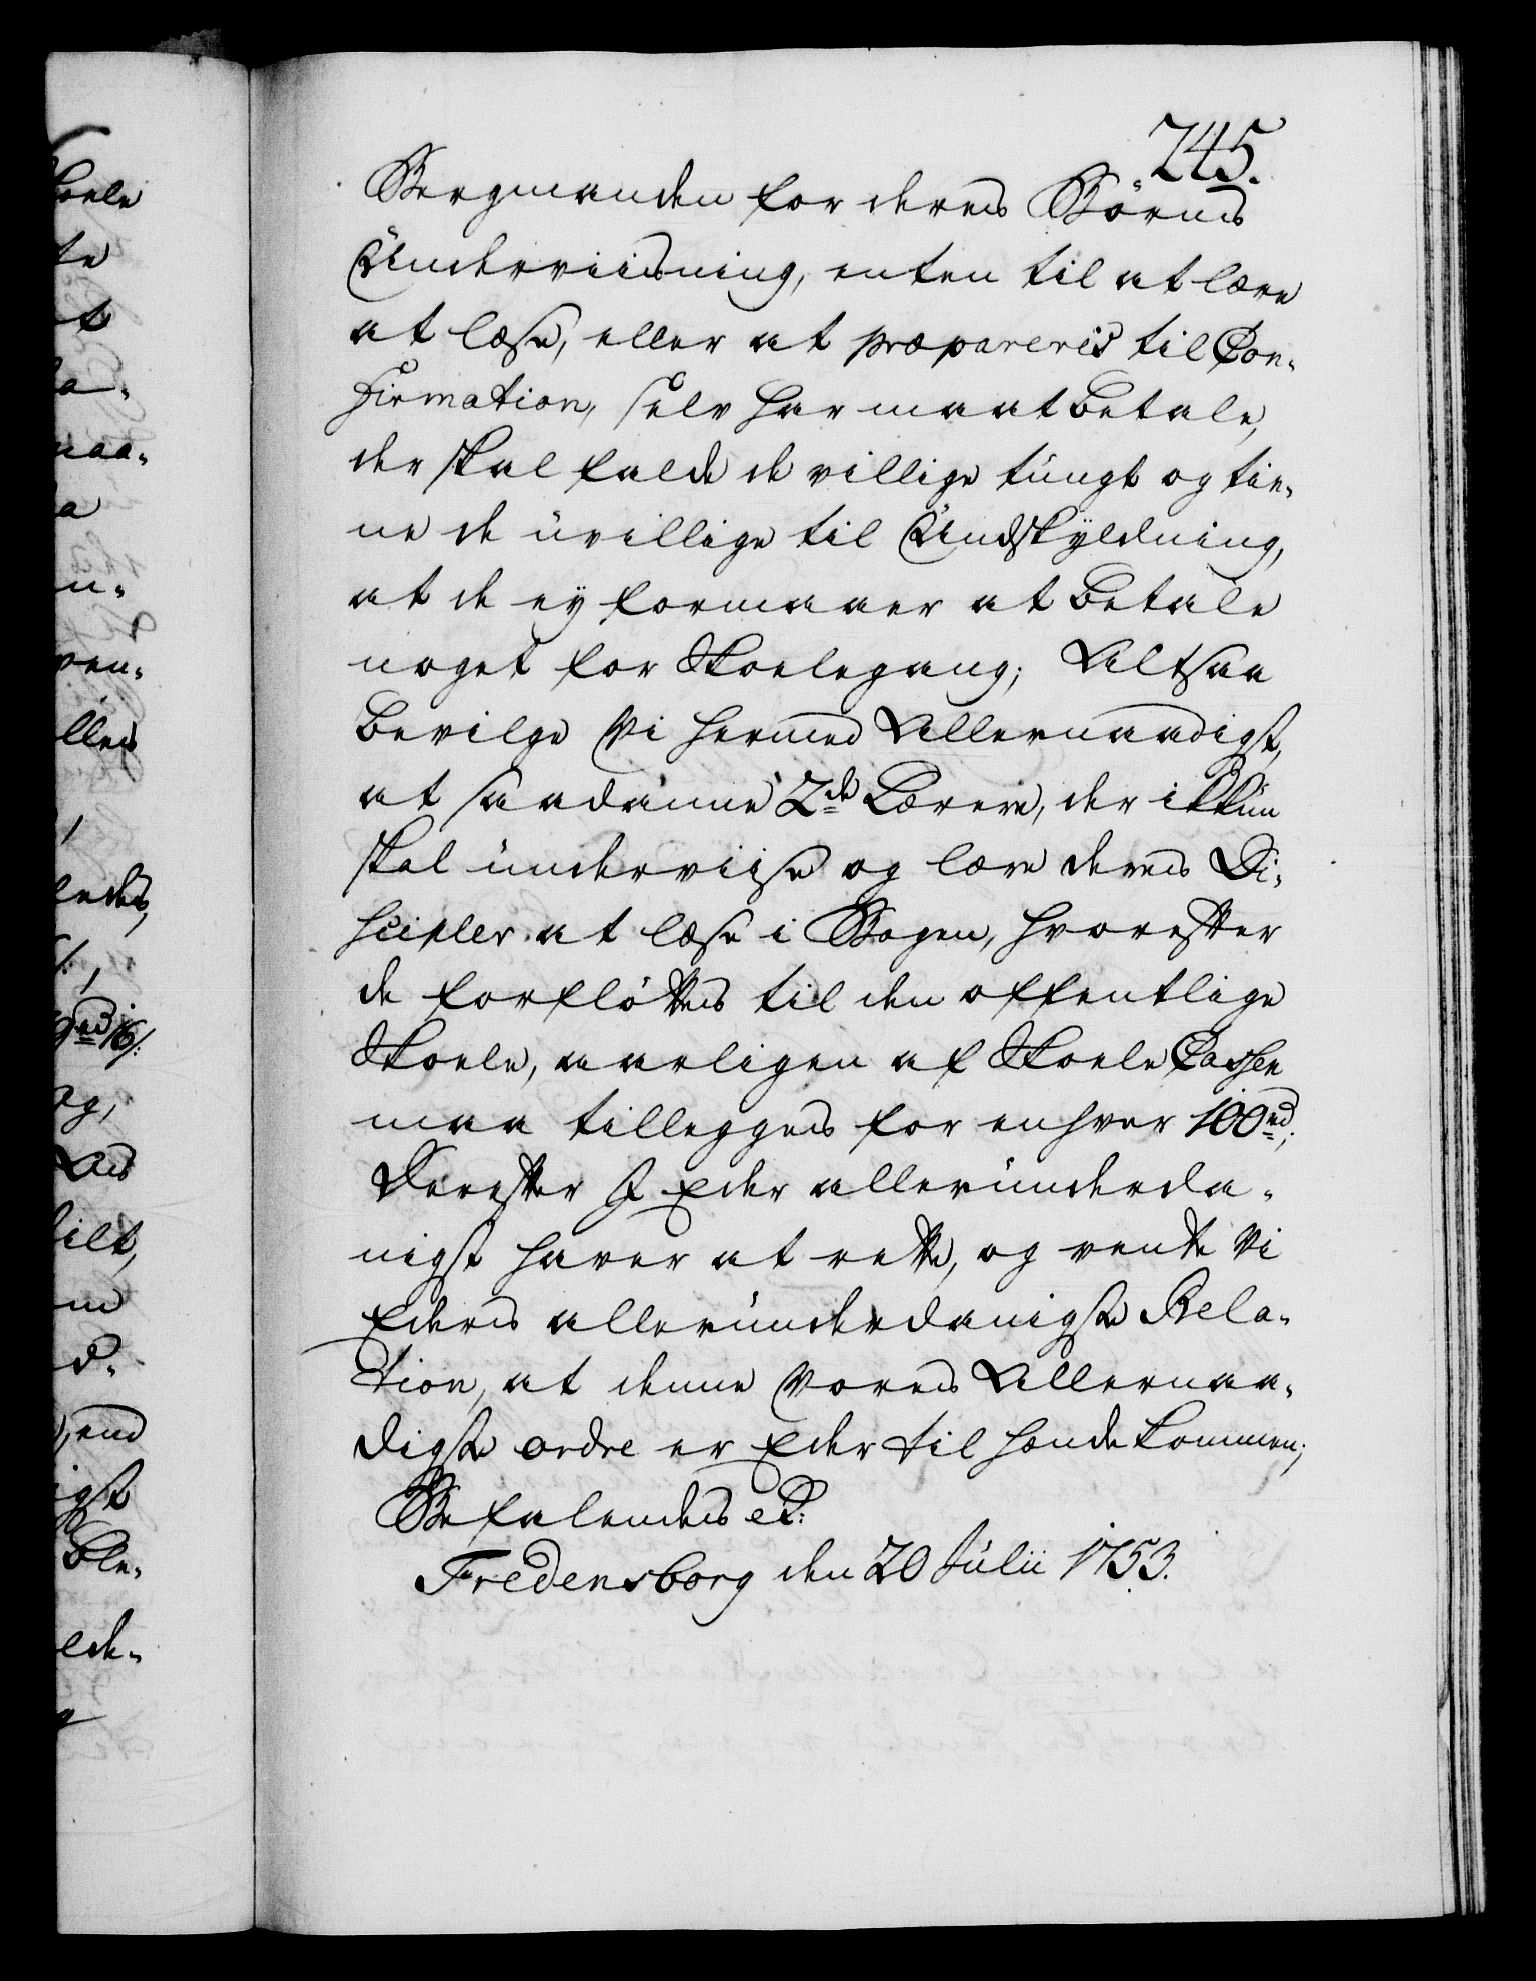 745.
Bergmanden for deres Börns
Underviisning, enten til at lære
at læse, eller at præpareris til Con-
firmation, selv har maat betale,
der skal falde de villige tungt og tie-
ne de uvillige til Undskyldning,
at de ey formaaer at betale
noget for Skoelegang; Altsaa
bevilge Vi hermed Allernaadigst,
at saadanne 2de Lærere, der ikkun
skal underviise og lære deres Di-
scipler at læse i Bogen, hvorefter
de forflöttes til den offentlige
Skoele, aarligen af Skoele Cassen
maa tillegges for enhver 100 rd;
Derefter I Eder allerunderda-
nigst haver at rette, og vente Vi
Eders allerunderdanigste Rela-
tion, at denne Vores Allernaa-
digste ordre er Eder til hænde kommen;
Befalendes etc:
Fredensborg den 20 Julii 1753.